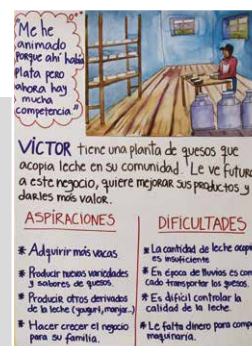 "Me he
animado
Porque ahí había
Plata pero
ahora hay
mucha
competencia."
VÍCTOR tiene una planta de quesos que
acopia leche en su comunidad. Le ve futuro
a este negocio, quiere mejorar sus productos y
darles más valor.
ASPIRACIONES
* Adquirir más vacas
* Producir nuevas variedades
y sabores de quesos.
* Producir otros derivados
de la leche (yogurt, manjar..)
* Hacer crecer el negocio
para su familia.
DIFICULTADES
* La cantidad de leche
es insuficiente
* En época de lluvias es
cado transportar los quesos.
* Es difícil controlar la
calidad de la leche.
* Le falta dinero para
maquinaria.